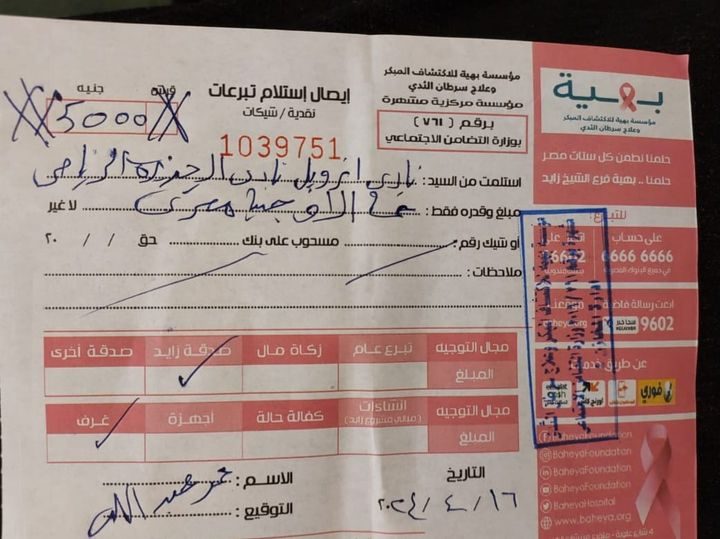 بهية
مؤسسة بهية للاكتشاف المبكر
وعلاج سرطان الثدي
مؤسسة بهية للاكتشاف المبكر
وعلاج سرطان الثدي
مؤسسة مركزية مشهرة
برقم ( ٧٦١ )
بوزارة التضامن الاجتماعي
إيصال إستلام تبرعات
نقدية / شيكات
1039751
قرش جنيه
5000
استلمت من السيد : نادي
مبلغ وقدره فقط : لا غير
أو شيك رقم : مسحوب على بنك حق / / ٢٠
ملاحظات :
مجال التوجيه تبرع عام زكاة مال صدقة زايد صدقة أخرى
المبلغ
مجال التوجيه انشاءات (مباني مشروع زايد) كفالة حالة أجهزة غرف
المبلغ
التاريخ
٢٠٢٤/٤/١٦
الاسم : عمر عبد الله
التوقيع :
حلمنا نطمن كل ستات مصر
حلمنا .. بهية فرع الشيخ زايد
للتبرع:
على حساب
6666 6666
في جميع البنوك المصرية
ابعت رسالة فاضية
9602
عن طريق خدمة
فوري
BaheyaFoundation
BaheyaFoundation
BaheyaFoundation
BaheyaHospital
www.baheya.org